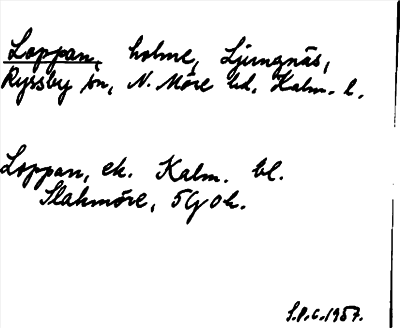 Loppan, holme, Ljungnäs,
Ryssby sn, N. Möre hd. Kalm. l.
Loppan, ek. Kalm. bl.
Slakmöre, 5G 0h.
S.P.G. 1957.